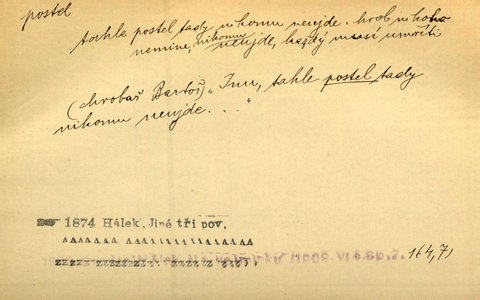 postel
tahle postel tady nikomu neujde. hrob nikoho
nemine, nikomu neujde, každý musí umříti
(hrobař Bartoš) „Inu, tahle postel tady
nikomu neujde. . . "
1874 Hálek, Jiné tři pov,
164,7)